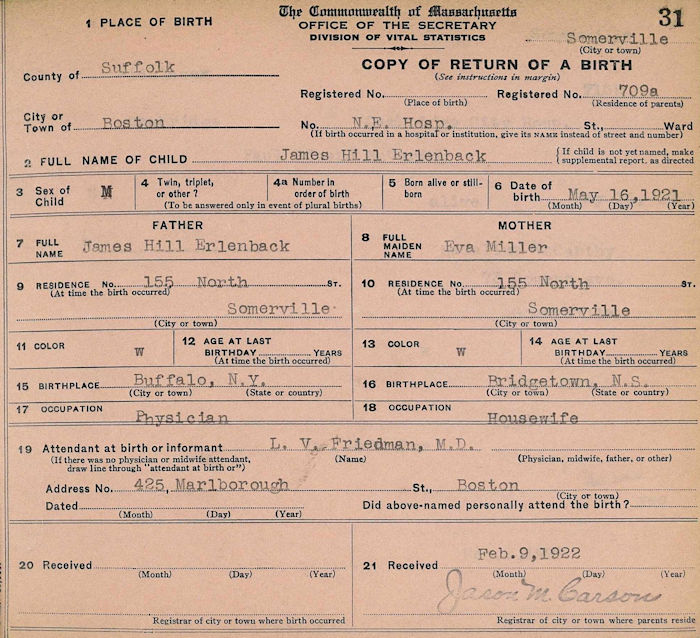 The Commonwealth of Massachusetts
OFFICE OF THE SECRETARY
DIVISION OF VITAL STATISTICS
31
1 PLACE OF BIRTH
Somerville
(City or town)
County of Suffolk
COPY OF RETURN OF A BIRTH
(See instructions in margin)
Registered No. (Place of birth) Registered No. 709a (Residence of parents)
City or Town of Boston
No. N.E. Hosp. St., Ward
(If birth occurred in a hospital or institution, give its NAME instead of street and number)
2 FULL NAME OF CHILD James Hill Erlenback
{ If child is not yet named, make supplemental report, as directed
3 Sex of Child M
4 Twin, triplet, or other ?
4a Number in order of birth
(To be answered only in event of plural births)
5 Born alive or still-born
6 Date of birth May 16,1921
(Month) (Day) (Year)
FATHER
7 FULL NAME James Hill Erlenback
9 RESIDENCE No. 155 North ST.
(At time the birth occurred)
Somerville
(City or town)
11 COLOR W
12 AGE AT LAST BIRTHDAY YEARS
(At time the birth occurred)
15 BIRTHPLACE Buffalo, N.Y.
(City or town) (State or country)
17 OCCUPATION Physician
MOTHER
8 FULL MAIDEN NAME Eva Miller
10 RESIDENCE No. 155 North ST.
(At time the birth occurred)
Somerville
(City or town)
13 COLOR W
14 AGE AT LAST BIRTHDAY YEARS
(At time the birth occurred)
16 BIRTHPLACE Bridgetown, N.S.
(City or town) (State or country)
18 OCCUPATION Housewife
19 Attendant at birth or informant L. V. Friedman, M.D.
(If there was no physician or midwife attendant, draw line through "attendant at birth or")
(Name) (Physician, midwife, father, or other)
Address No. 425, Marlborough St., Boston
(City or town)
Dated
(Month) (Day) (Year)
Did above-named personally attend the birth?
20 Received
(Month) (Day) (Year)
Registrar of city or town where birth occurred
21 Received Feb.9,1922
(Month) (Day) (Year)
Jason M. Carson
Registrar of city or town where parents reside